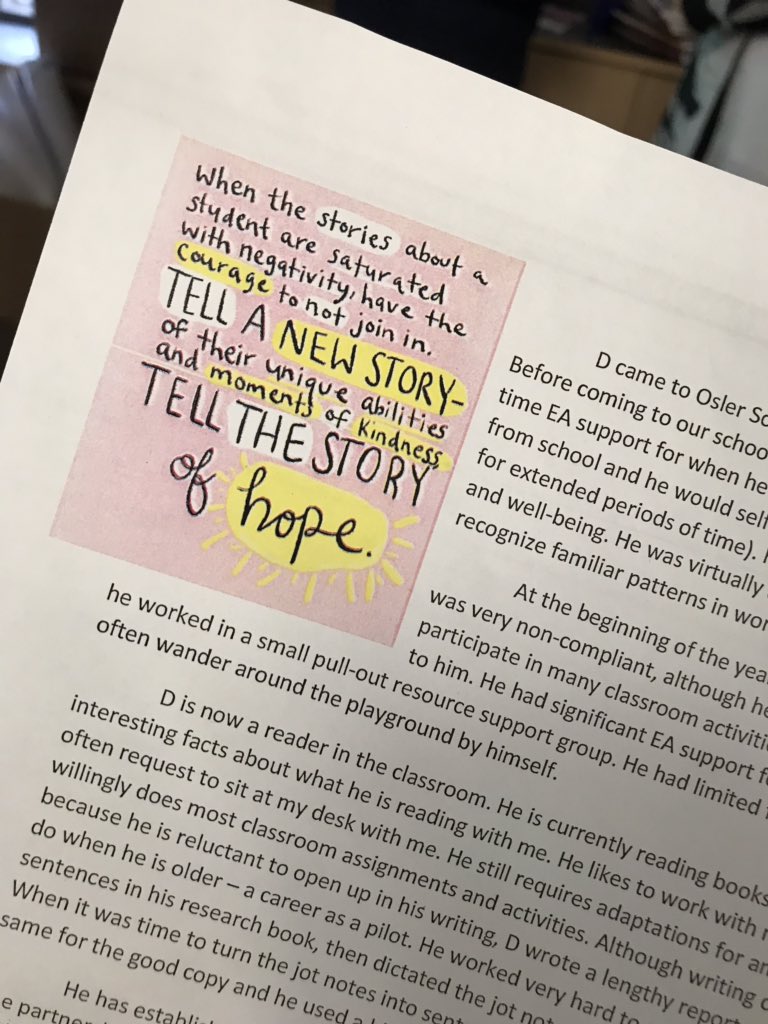 When the stories about a
student are saturated
with negativity, have the
courage to not join in.
TELL A NEW STORY-
of their unique abilities
and moments of kindness
TELL THE STORY
of hope.
D came to Osler
Before coming to our
time EA support for when he
from school and he would
for extended periods of time).
and well-being. He was virtually
recognize familiar patterns in
At the beginning of the
was very non-compliant, although he
participate in many classroom
to him. He had significant EA support
he worked in a small pull-out resource support group. He had limited
often wander around the playground by himself.
D is now a reader in the classroom. He is currently reading books
interesting facts about what he is reading with me. He likes to work with
often request to sit at my desk with me. He still requires adaptations for
willingly does most classroom assignments and activities. Although writing
because he is reluctant to open up in his writing, D wrote a lengthy
do when he is older – a career as a pilot. He worked very hard to
sentences in his research book, then dictated the jot
When it was time to turn the jot notes into
same for the good copy and he used a
He has